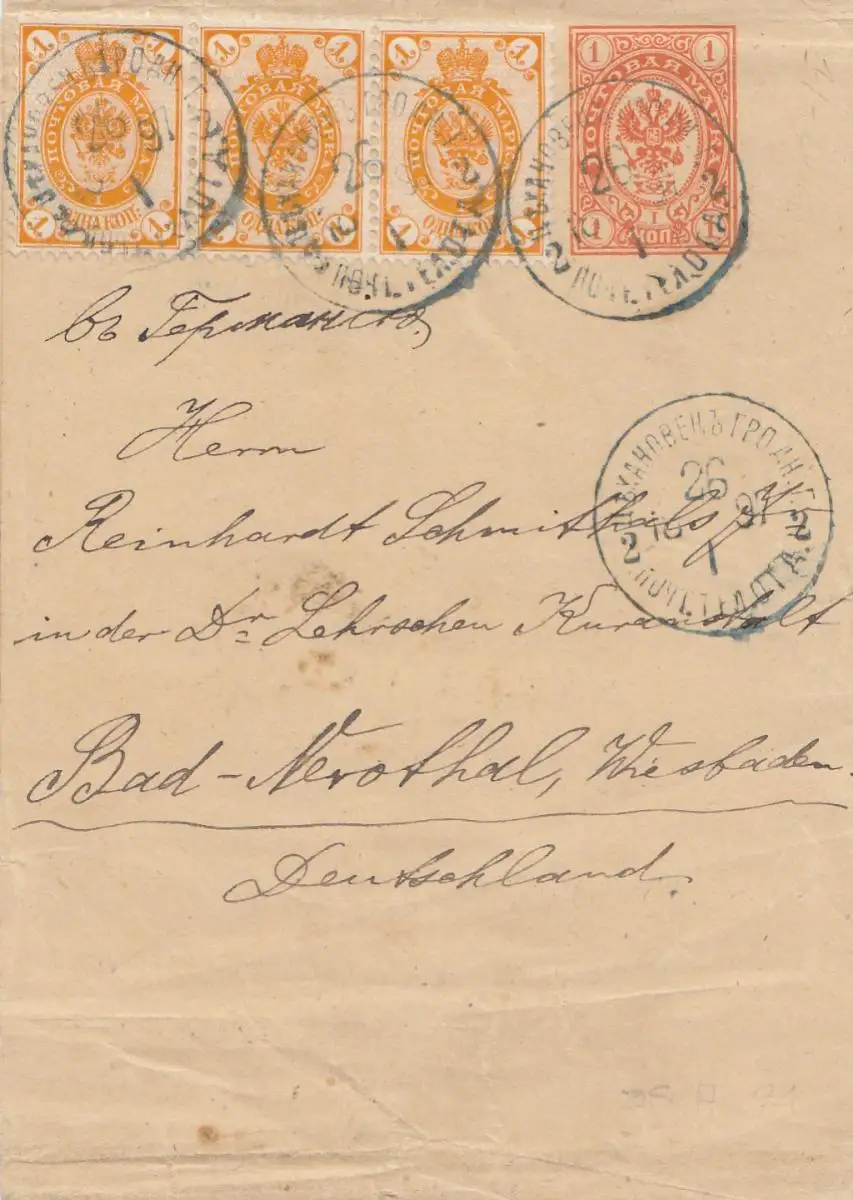 1 1 1 1 1 1 1 1
ПОЧТОВАЯ МАРКА ПОЧТОВАЯ МАРКА ПОЧТОВАЯ МАРКА ПОЧТОВАЯ МАРКА
I I
1 ОДНА КОП. 1 1 ОДНА КОП. 1 1 ОДНА КОП. 1 1 КОП. 1
26
26
1
1
1
въ Германію,
Herrn
ЦѢХАНОВЕЦЪ ГРОДН. Г.
26
97
2 1 2
ПОЧТ. ТЕЛ. ОТД.
Reinhardt Schmitthals
in der Dr Lehrschen Kuranstalt
Bad-Nerothal, Wiesbaden.
Deutschland.